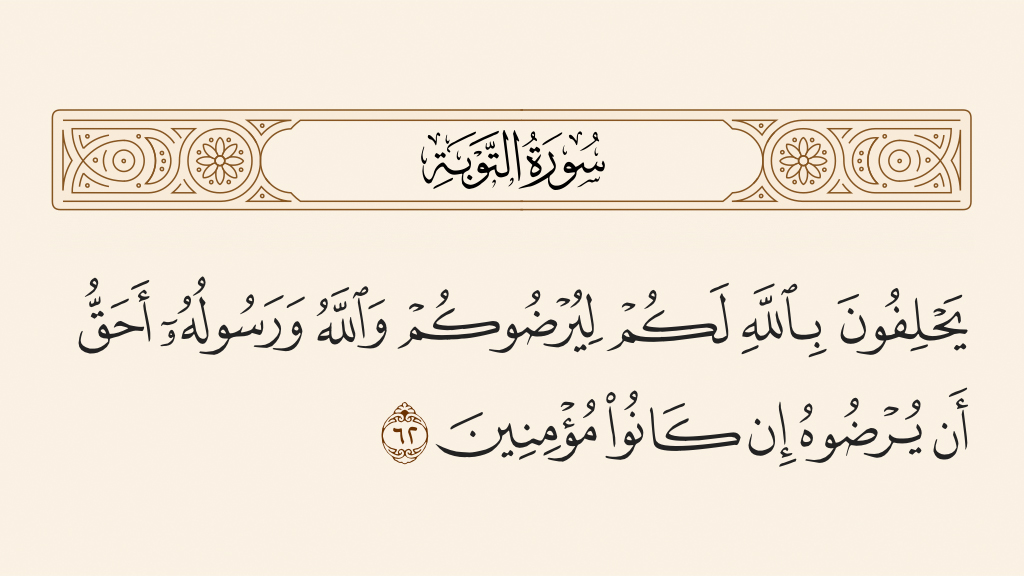 سُورَةُ التَّوْبَةِ
يَحْلِفُونَ بِٱللَّهِ لَكُمْ لِيُرْضُوكُمْ وَٱللَّهُ وَرَسُولُهُۥٓ أَحَقُّ
أَن يُرْضُوهُ إِن كَانُوا۟ مُؤْمِنِينَ ٦٢